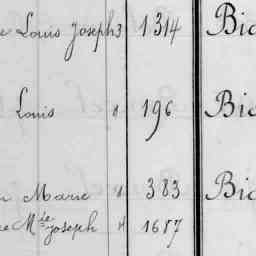 e Louis Joseph 3 1314 Bic
Louis 8 196 Bic
Marie 383 Bic
Mie Joseph 4 1687